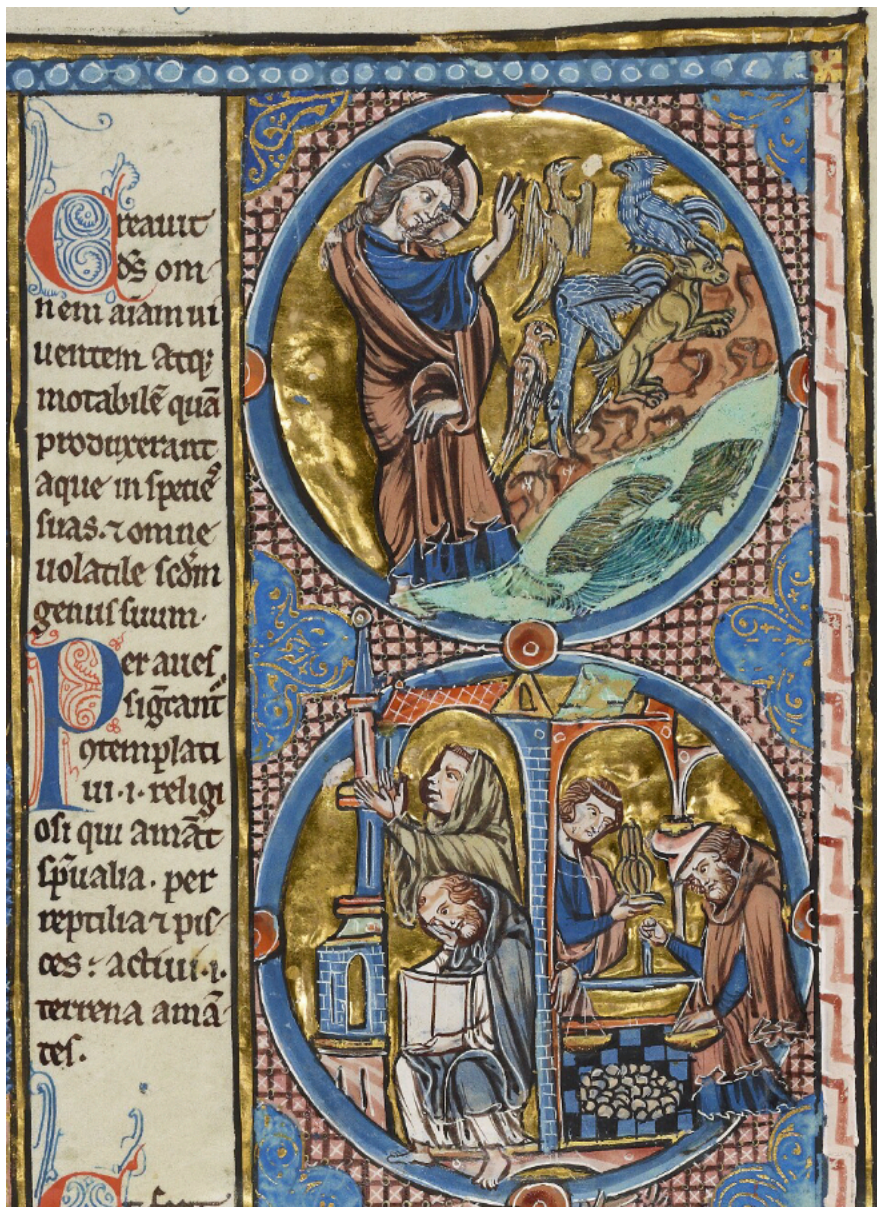 Creauit
ds̄ om
nem aīam ui
uentem atq;
motabilē quā
produxerant
aque in speties
suas. ⁊ omne
uolatile scd̄m
genus suum.
Per aues
siḡtant̄
ꝯtemplati
ui .i. religi
osi qui amāt
sp̄ualia. per
reptilia ⁊ pis
ces: actiui .i.
terrena amā
tes.